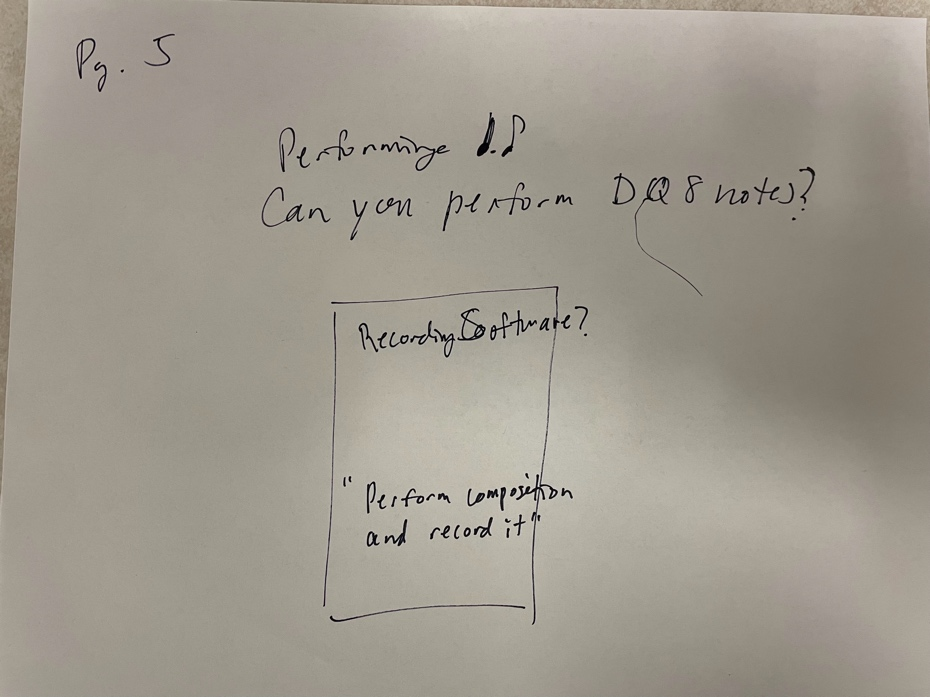 Pg. 5
Performing ♩. ♪
Can you perform DQ8 notes?
Recording Software?
"Perform composition
and record it"